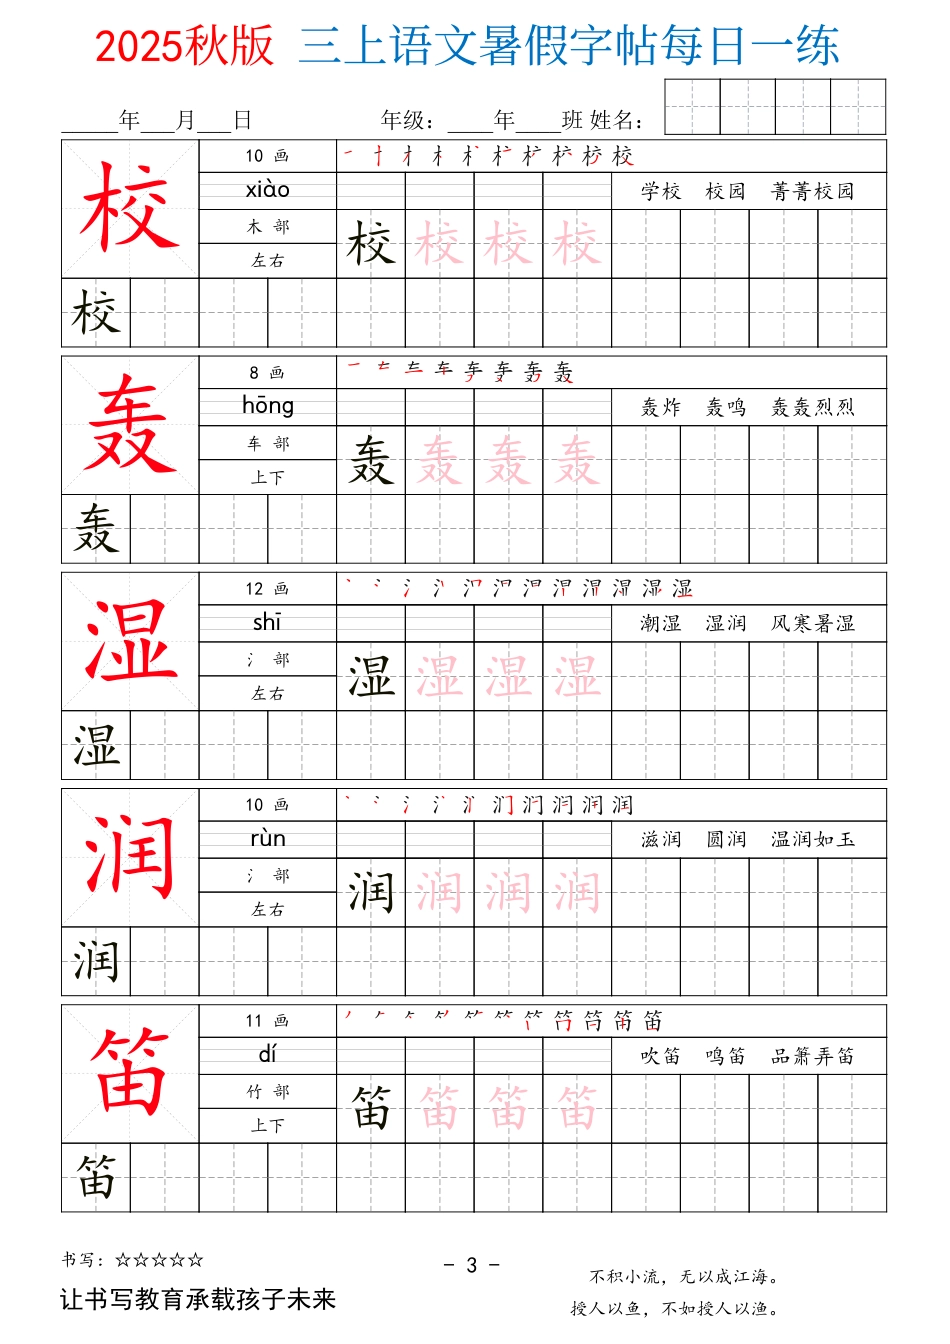 2025秋版 三上语文暑假字帖每日一练
_____年___月___日 年级：____年____班 姓名：
校 10 画
xiào 学校 校园 菁菁校园
木 部
左右 校 校 校 校
校
轰 8 画
hōng 轰炸 轰鸣 轰轰烈烈
车 部
上下 轰 轰 轰 轰
轰
湿 12 画
shī 潮湿 湿润 风寒暑湿
氵 部
左右 湿 湿 湿 湿
湿
润 10 画
rùn 滋润 圆润 温润如玉
氵 部
左右 润 润 润 润
润
笛 11 画
dí 吹笛 鸣笛 品箫弄笛
竹 部
上下 笛 笛 笛 笛
笛
书写：☆☆☆☆☆
- 3 -
不积小流，无以成江海。
让书写教育承载孩子未来
授人以鱼，不如授人以渔。